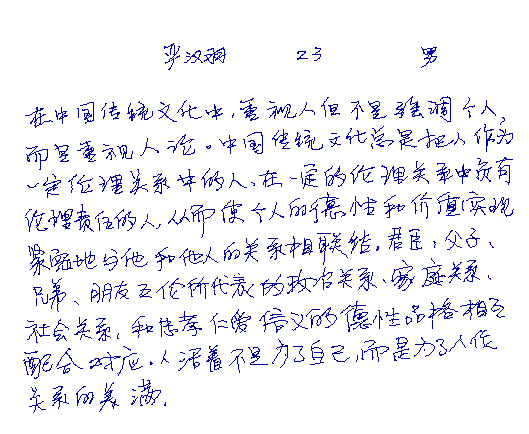 严汉明 23 男
在中国传统文化中，重视人但不是强调个人，
而是重视人论。中国传统文化总是把人作为
一定伦理关系中的人，在一定的伦理关系中负有
伦理责任的人，从而使个人的德性和价值实现
紧密地与他和他人的关系相联结。君臣、父子、
兄弟、朋友五伦所代表的政治关系、家庭关系、
社会关系，和忠孝仁爱信义的德性品格相互
配合对应。人活着不是为了自己，而是为了人伦
关系的美满。